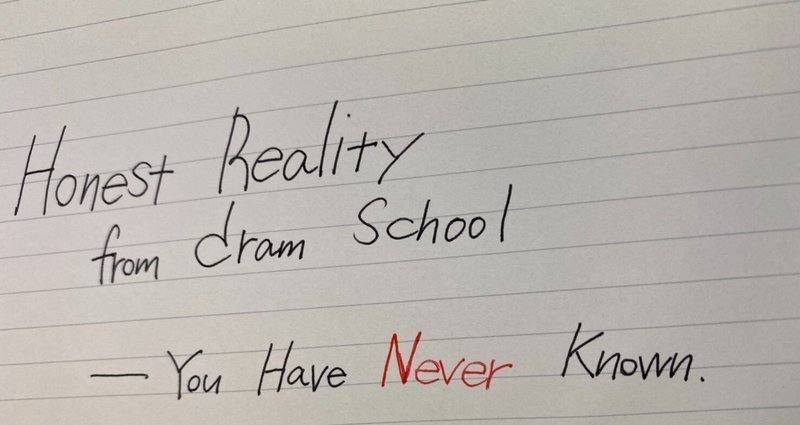 Honest Reality
from dram School
— You Have Never Known.